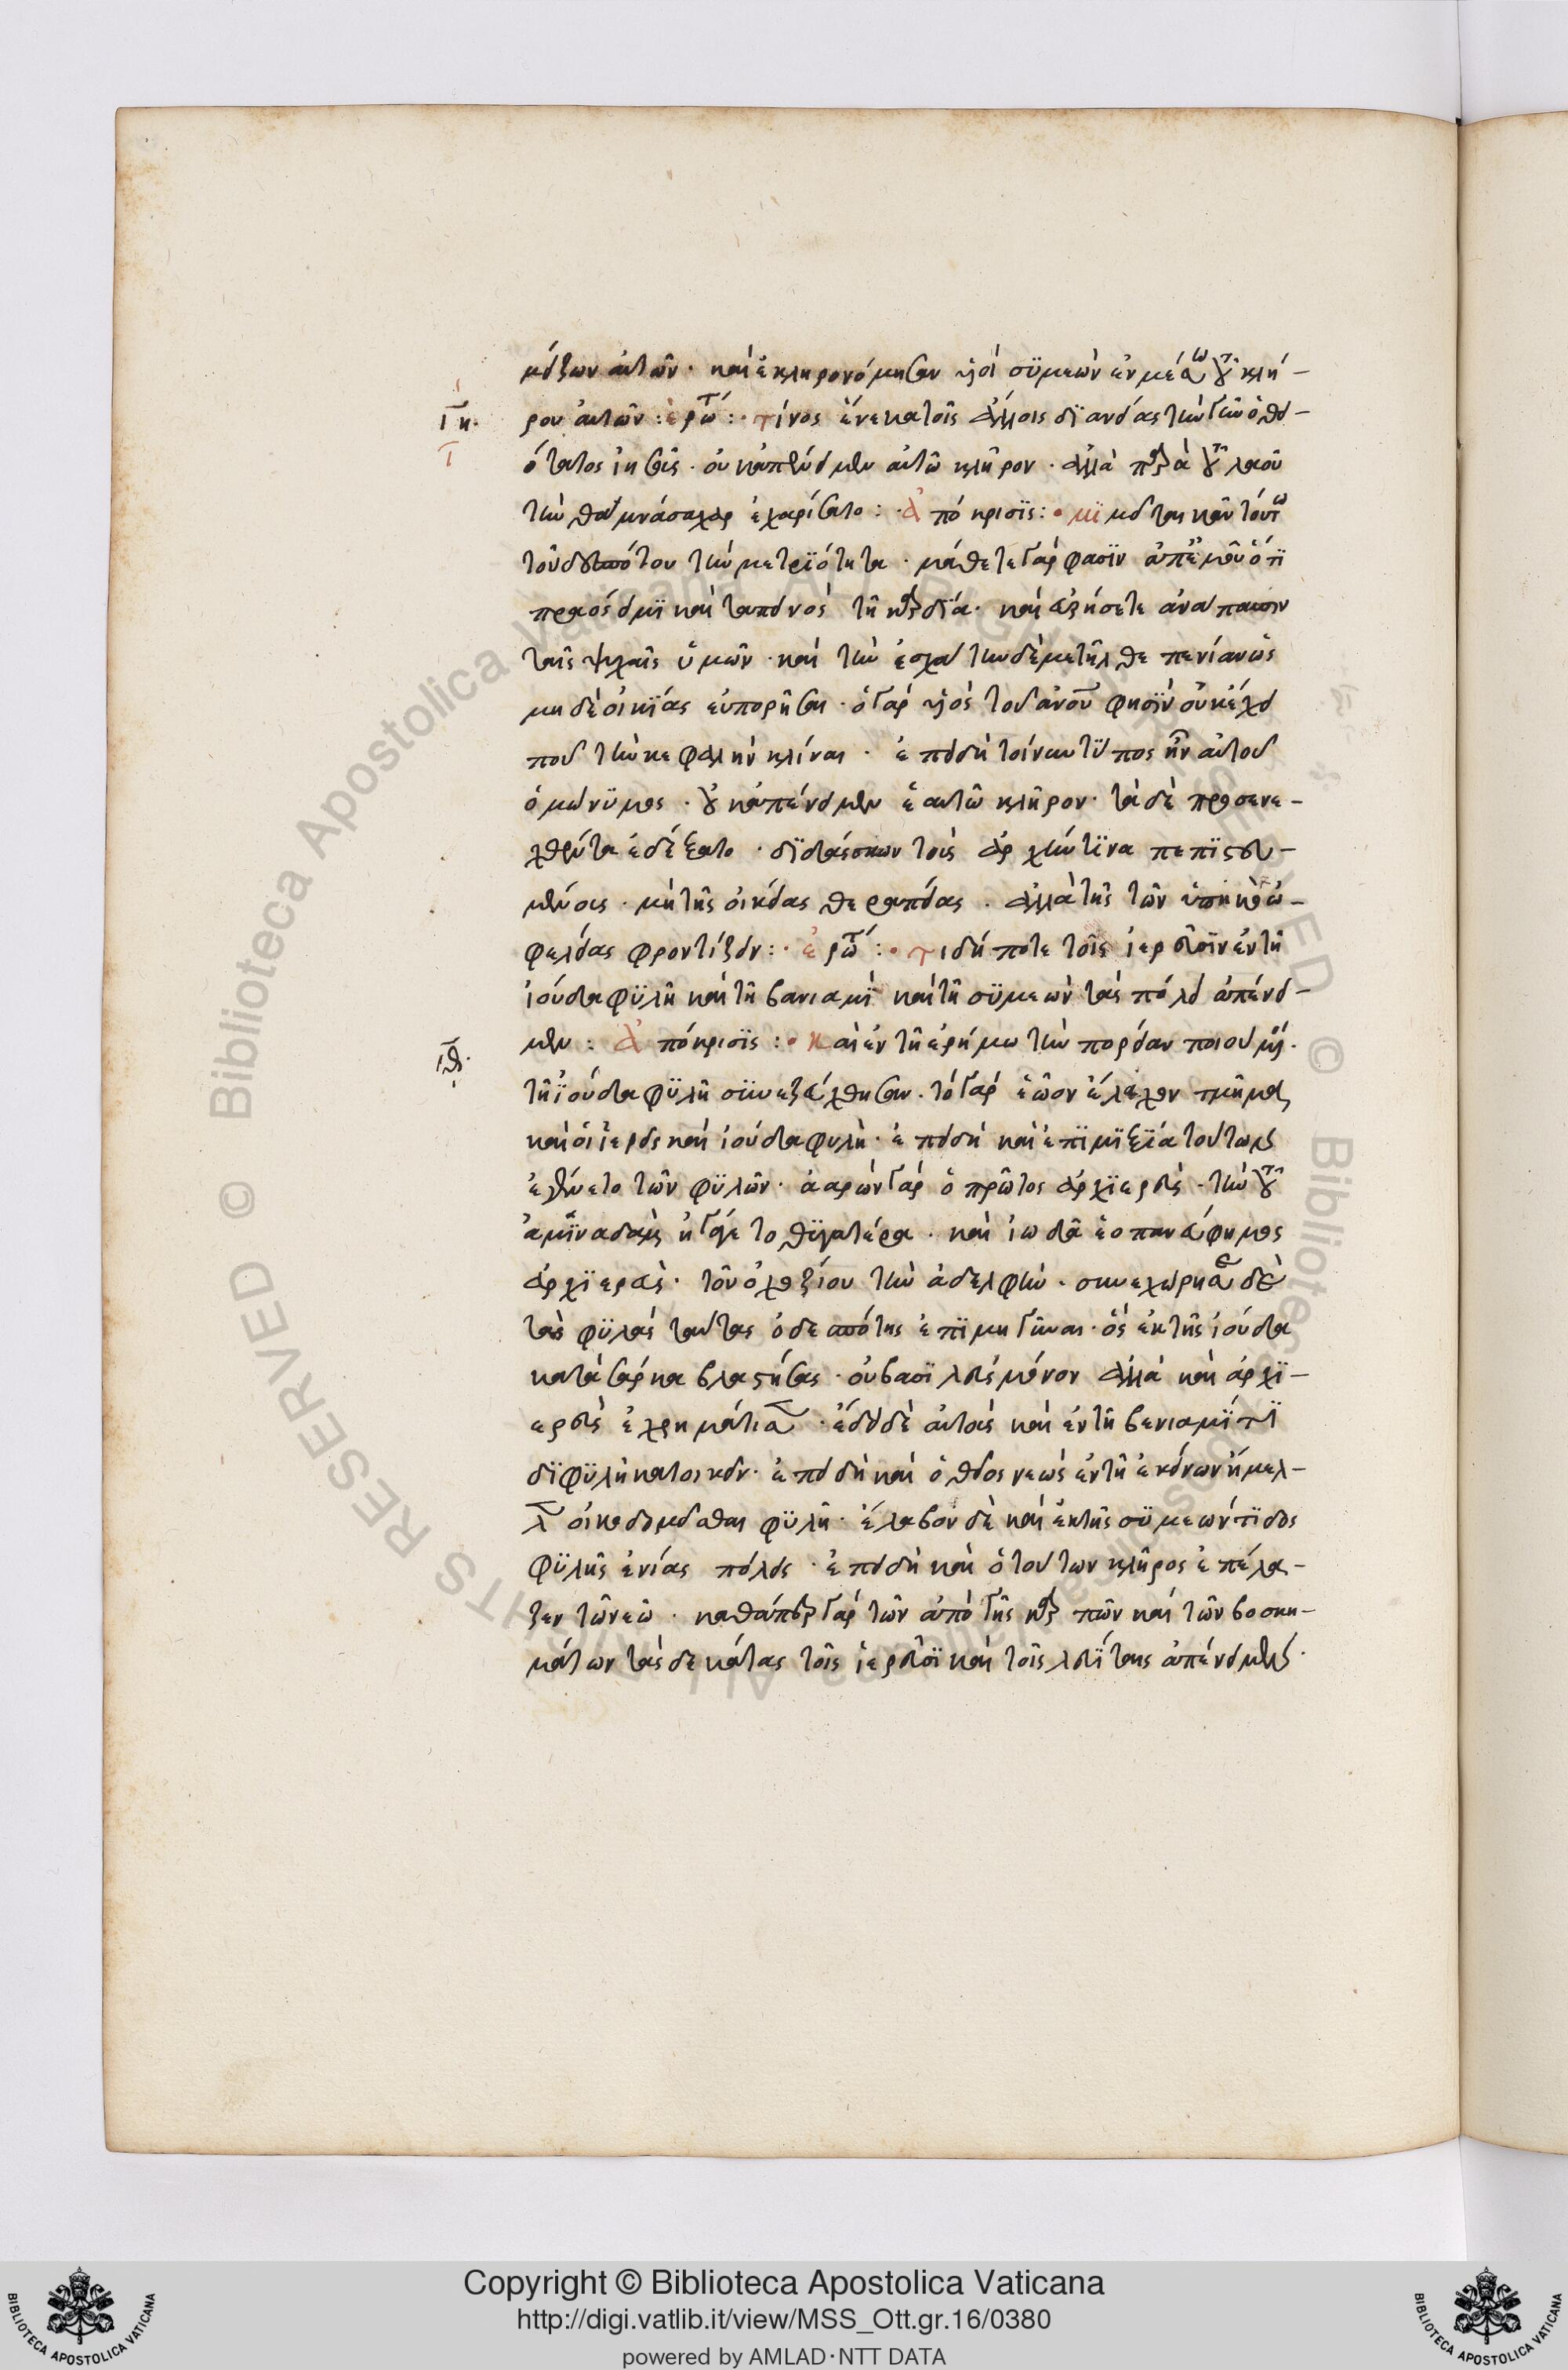 μείζων αὐτῶν · καὶ ἐκληρονόμησαν υἱοὶ συμεὼν ἐν μέσω τοῦ κλή–
ιη· ρου αὐτῶν : ἐρώτ : τίνος ἕνεκα τοῖς ἄλλοις διανείας τὴν γῆν ὁ θει–
ότατος ἰησοῦς · οὐκ ἀπένειμεν αὑτῶ κλῆρον · ἀλλὰ παρὰ τοῦ λαοῦ
τὴν θαμνάσαχαρ ἐχαρίσατο : ἀπόκρισϊς : μϊμεῖται κἂν τούτω
τοῦ δεσπότου τὴν μετρϊότητα · μάθετε γάρ φασϊν ἀπ' ἐμοῦ ὅτι
πραός εἰμϊ καὶ ταπεινὸς τῆ καρδία · καὶ εὑρήσετε ἀνάπαυσιν
ταῖς ψυχαῖς ὑμῶν · καὶ τὴν ἐσχάτην δὲ μετῆλθε πενίαν ὡς
μηδὲ οἰκϊίας εὐπορῆσαι · ὁ γὰρ υἱὸς τοῦ ἀνου φησϊν οὐκ ἔχει
ποῦ τὴν κεφαλὴν κλίναι · ἐπειδὴ τοίνυν τύπος ἦν αὐτοῦ
ὁμώνϋμος · οὐκ ἀπένειμεν ἑαυτῶ κλῆρον · τὰ δὲ προσενε–
χθέντα ἐδέξατο · δϊδάσκων τοὺς ἀρχήν τϊνα πεπϊστευ–
μένους · μὴ τῆς οἰκείας θεραπείας · ἀλλὰ τῆς τῶν ὑπηκόων ὠ–
φελείας φροντίζειν : ἐρώτ : τι δή ποτε τοῖς ἱερεῦσϊν ἐν τῆ
ἰούδα φϋλῆ καὶ τῆ βανιαμὶ καὶ τῆ σϋμεὼν τὰς πόλεις ἀπένει–
ιθ· μεν : ἀπόκρισϊς : καὶ ἐν τῆ ἐρήμω τὴν πορείαν ποιούμενοι ·
τῆ ἰούδα φϋλῆ συνεζεύχθησαν · τὸ γὰρ ἑῶον ἔλαχον τμῆμα
καὶ οἱ ἱερεῖς καὶ ἰούδα φυλὴ · ἐπειδὴ καὶ ἐπϊμϊξία τούτων
ἐγένετο τῶν φϋλῶν · ἀαρὼν γὰρ ὁ πρῶτος ἀρχϊερεὺς · τὴν τοῦ
ἀμϊναδὰμ ἠγάγετο θϋγατέρα · καὶ ἰωδᾶε ὁ πανεύφημος
ἀρχϊερεὺς · τοῦ ὀχοζίου τὴν ἀδελφὴν · συνεχώρησε δὲ
τὰς φϋλὰς ταύτας ὁ δεσπότης ἐπϊμηγῆναι · ὃς ἐκ τῆς ἰούδα
κατὰ σάρκα βλαστήσας · οὐ βασϊλεὺς μόνον ἀλλὰ καὶ ἀρχϊ–
ερεὺς ἐχρημάτισε · ἔδει δὲ αὐτοὺς καὶ ἐν τῆ βενιαμίτϊ
δϊ φϋλῆ κατοικεῖν · ἐπειδὴ καὶ ὁ θεῖος νεὼς ἐν τῆ ἐκείνων ἤμελ–
λεν οἰκοδομεῖσθαι φϋλῆ · ἔλαβον δὲ καὶ ἐκ τῆς σϋμεώντϊδος
φϋλῆς ἐνίας πόλεις · ἐπειδὴ καὶ ὁ τούτων κλῆρος ἐπέλα–
ζεν τῶ νεῶ · καθάπερ γὰρ τῶν ἀπὸ γῆς καρπῶν καὶ τῶν βοσκη–
μάτων τὰς δεκάτας τοῖς ἱερεῦσϊ καὶ τοῖς λευΐταις ἀπένειμεν ·
Copyright © Biblioteca Apostolica Vaticana
http://digi.vatlib.it/view/MSS_Ott.gr.16/0380
powered by AMLAD·NTT DATA